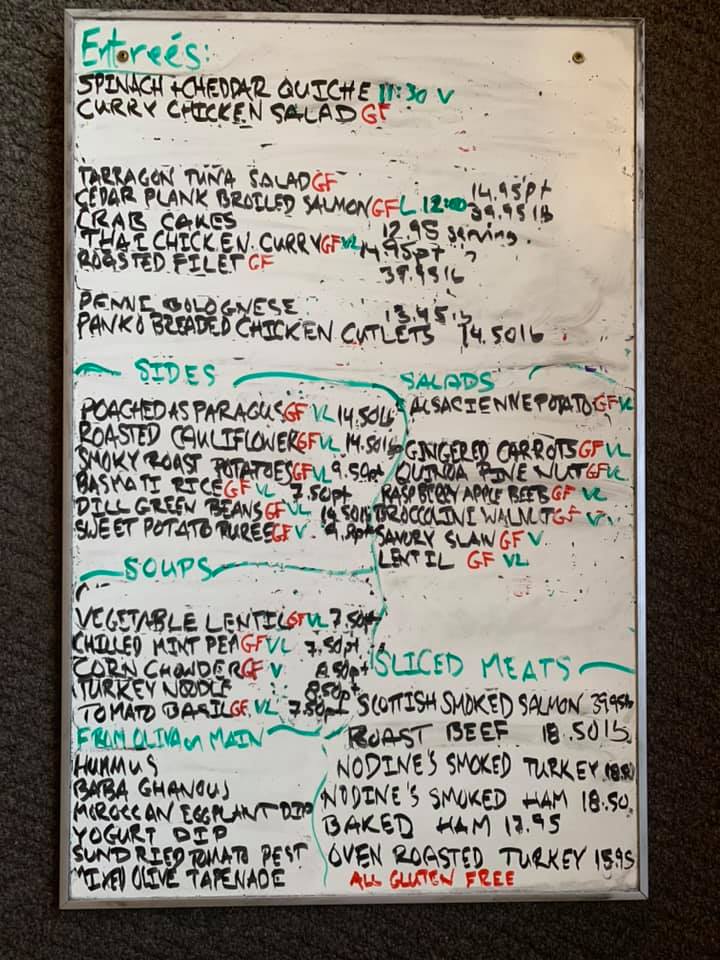 Entreés:
SPINACH + CHEDDAR QUICHE 11:30 V
CURRY CHICKEN SALAD GF
TARRAGON TUNA SALAD GF 14.95pt
CEDAR PLANK BROILED SALMON GF L 12:00 39.95 lb
CRAB CAKES 12.95 serving
THAI CHICKEN CURRY GF VL 14.95pt
ROASTED FILET GF 39.95 lb
PENNE BOLOGNESE 13.45
PANKO BREADED CHICKEN CUTLETS 14.50 lb
SIDES
POACHED ASPARAGUS GF VL 14.50 lb
ROASTED CAULIFLOWER GF VL 14.50 lb
SMOKY ROAST POTATOES GF VL 9.50pt
BASMATI RICE GF VL 7.50pt
DILL GREEN BEANS GF VL 14.50 lb
SWEET POTATO PUREE GF V
SALADS
ALSACIENNE POTATO GF VL
GINGERED CARROTS GF VL
QUINOA PINE NUT GF VL
RASPBERRY APPLE BEETS GF VL
BROCCOLINI WALNUT GF
SAVORY SLAW GF V
LENTIL GF VL
SOUPS
VEGETABLE LENTIL GF VL 7.50pt
CHILLED MINT PEA GF VL 7.50pt
CORN CHOWDER GF V 8.50pt
TURKEY NOODLE 8.50pt
TOMATO BASIL GF VL 7.50pt
FROM OLIVA on MAIN
HUMMUS
BABA GHANOUJ
MOROCCAN EGGPLANT DIP
YOGURT DIP
SUNDRIED TOMATO PEST
MIXED OLIVE TAPENADE
SLICED MEATS
SCOTTISH SMOKED SALMON 39.95 lb
ROAST BEEF 18.50 lb
NODINE'S SMOKED TURKEY
NODINE'S SMOKED HAM 18.50
BAKED HAM 17.95
OVEN ROASTED TURKEY 15.95
ALL GLUTEN FREE